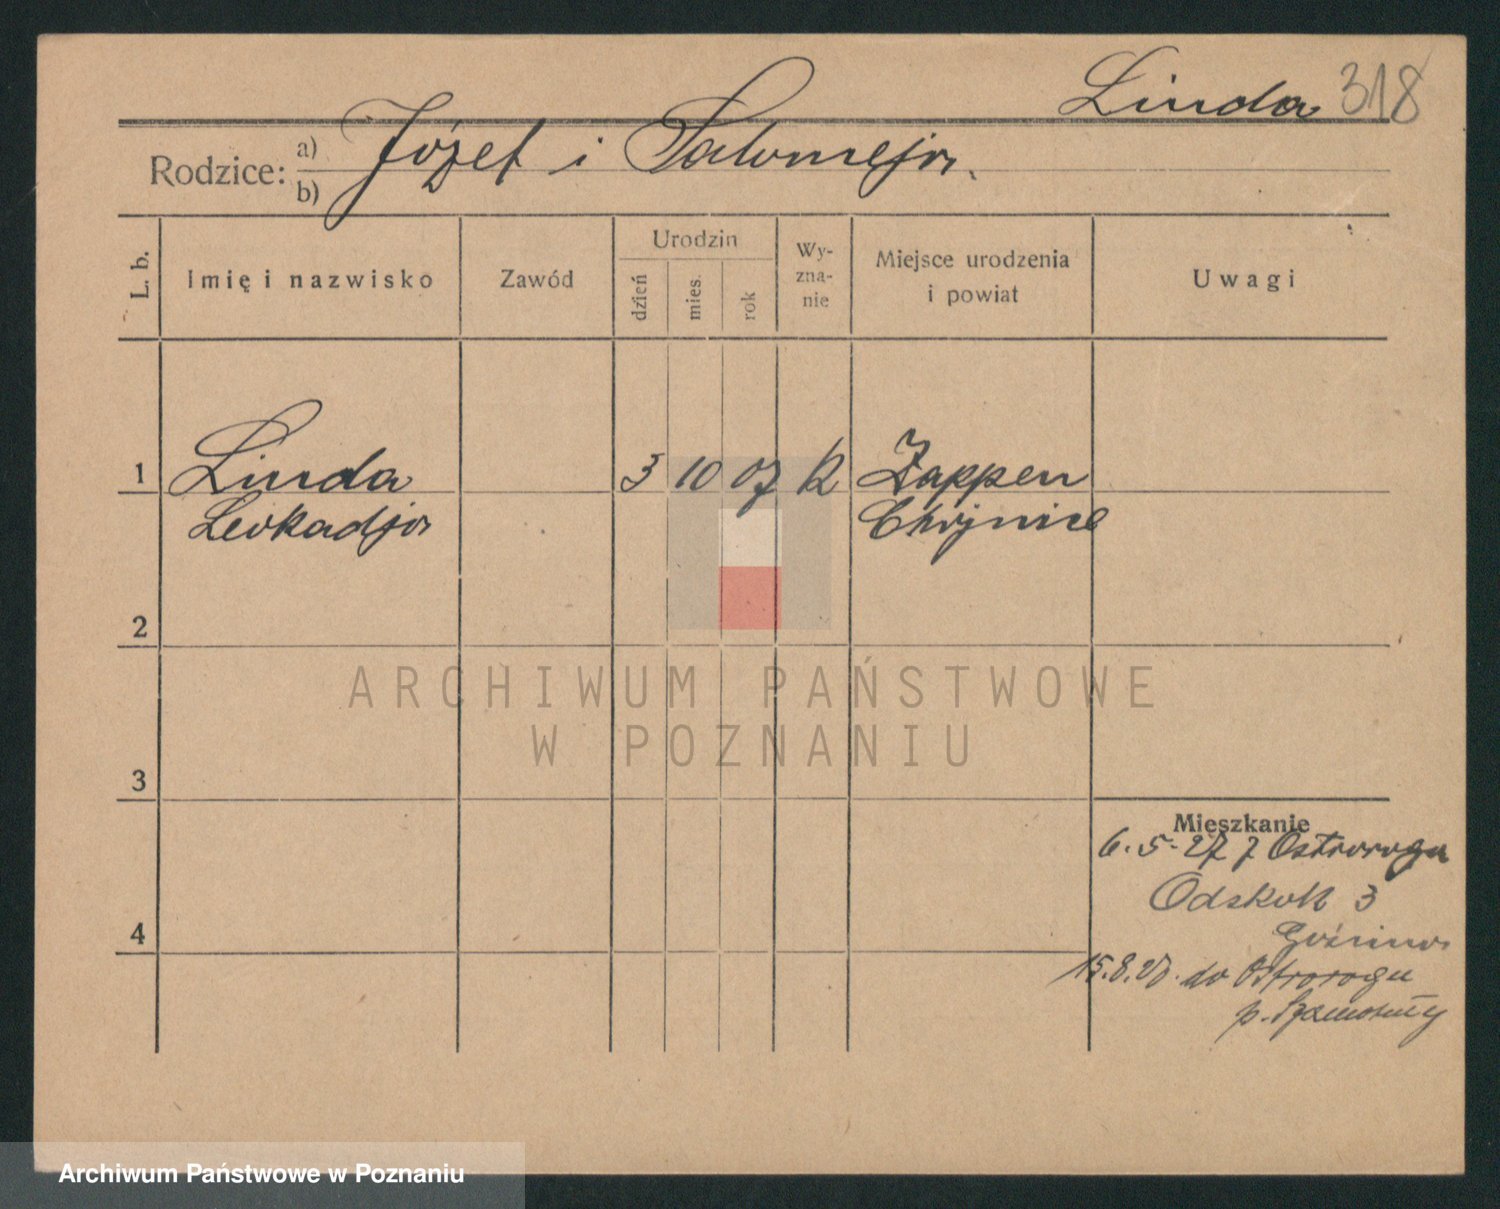 Linda 318
Rodzice: a) b) Józef i Salomeja.
L. b. Imię i nazwisko Zawód Urodzin dzień mies. rok Wy-zna-nie Miejsce urodzenia i powiat Uwagi
1 Linda 3 10 07 K Zappen
Leokadja Chojnice
2
3
4
Mieszkanie
6.5.27 z Ostroroga
3
15.8.27. do Ostrorogu
p. Szamotuły
ARCHIWUM PAŃSTWOWE
W POZNANIU
Archiwum Państwowe w Poznaniu